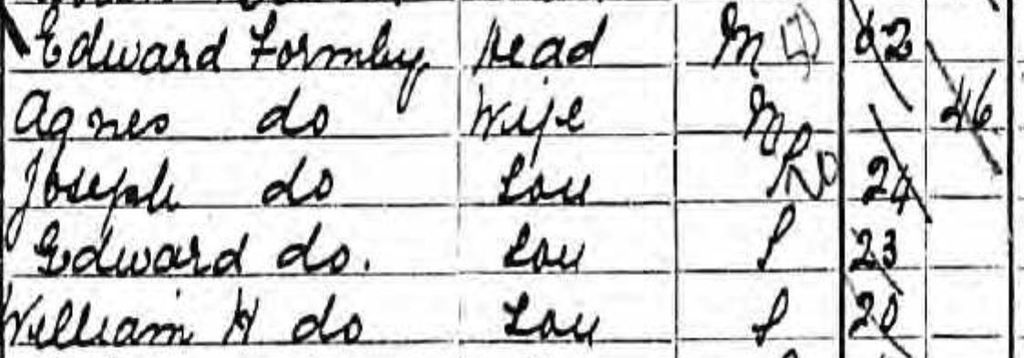 Edward Formby Head M 62
Agnes do Wife M 46
Joseph do Son 24
Edward do. Son S 23
William H do Son S 20